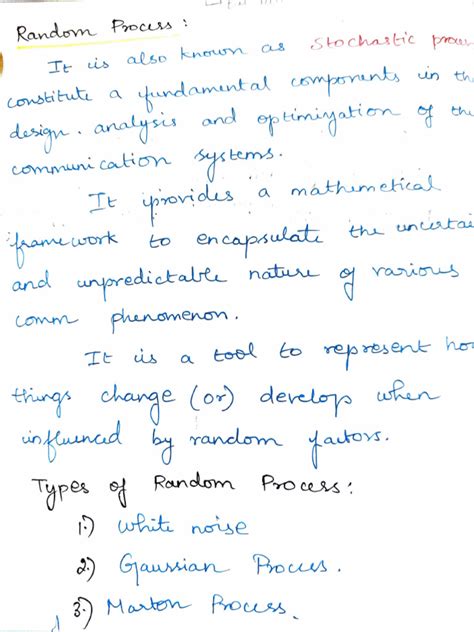 Random Process :
It is also known as Stochastic proce
constitute a fundamental components in the
design. analysis and optimization of the
communication systems.
It provides a mathemetical
framework to encapsulate the uncertai
and unpredictable nature of various
comm phenomenon.
It is a tool to represent ho
things change (or) develop when
influenced by random factors.
Types of Random Process:
1.) White noise
2.) Gaussian Process.
3.) Markon Process.